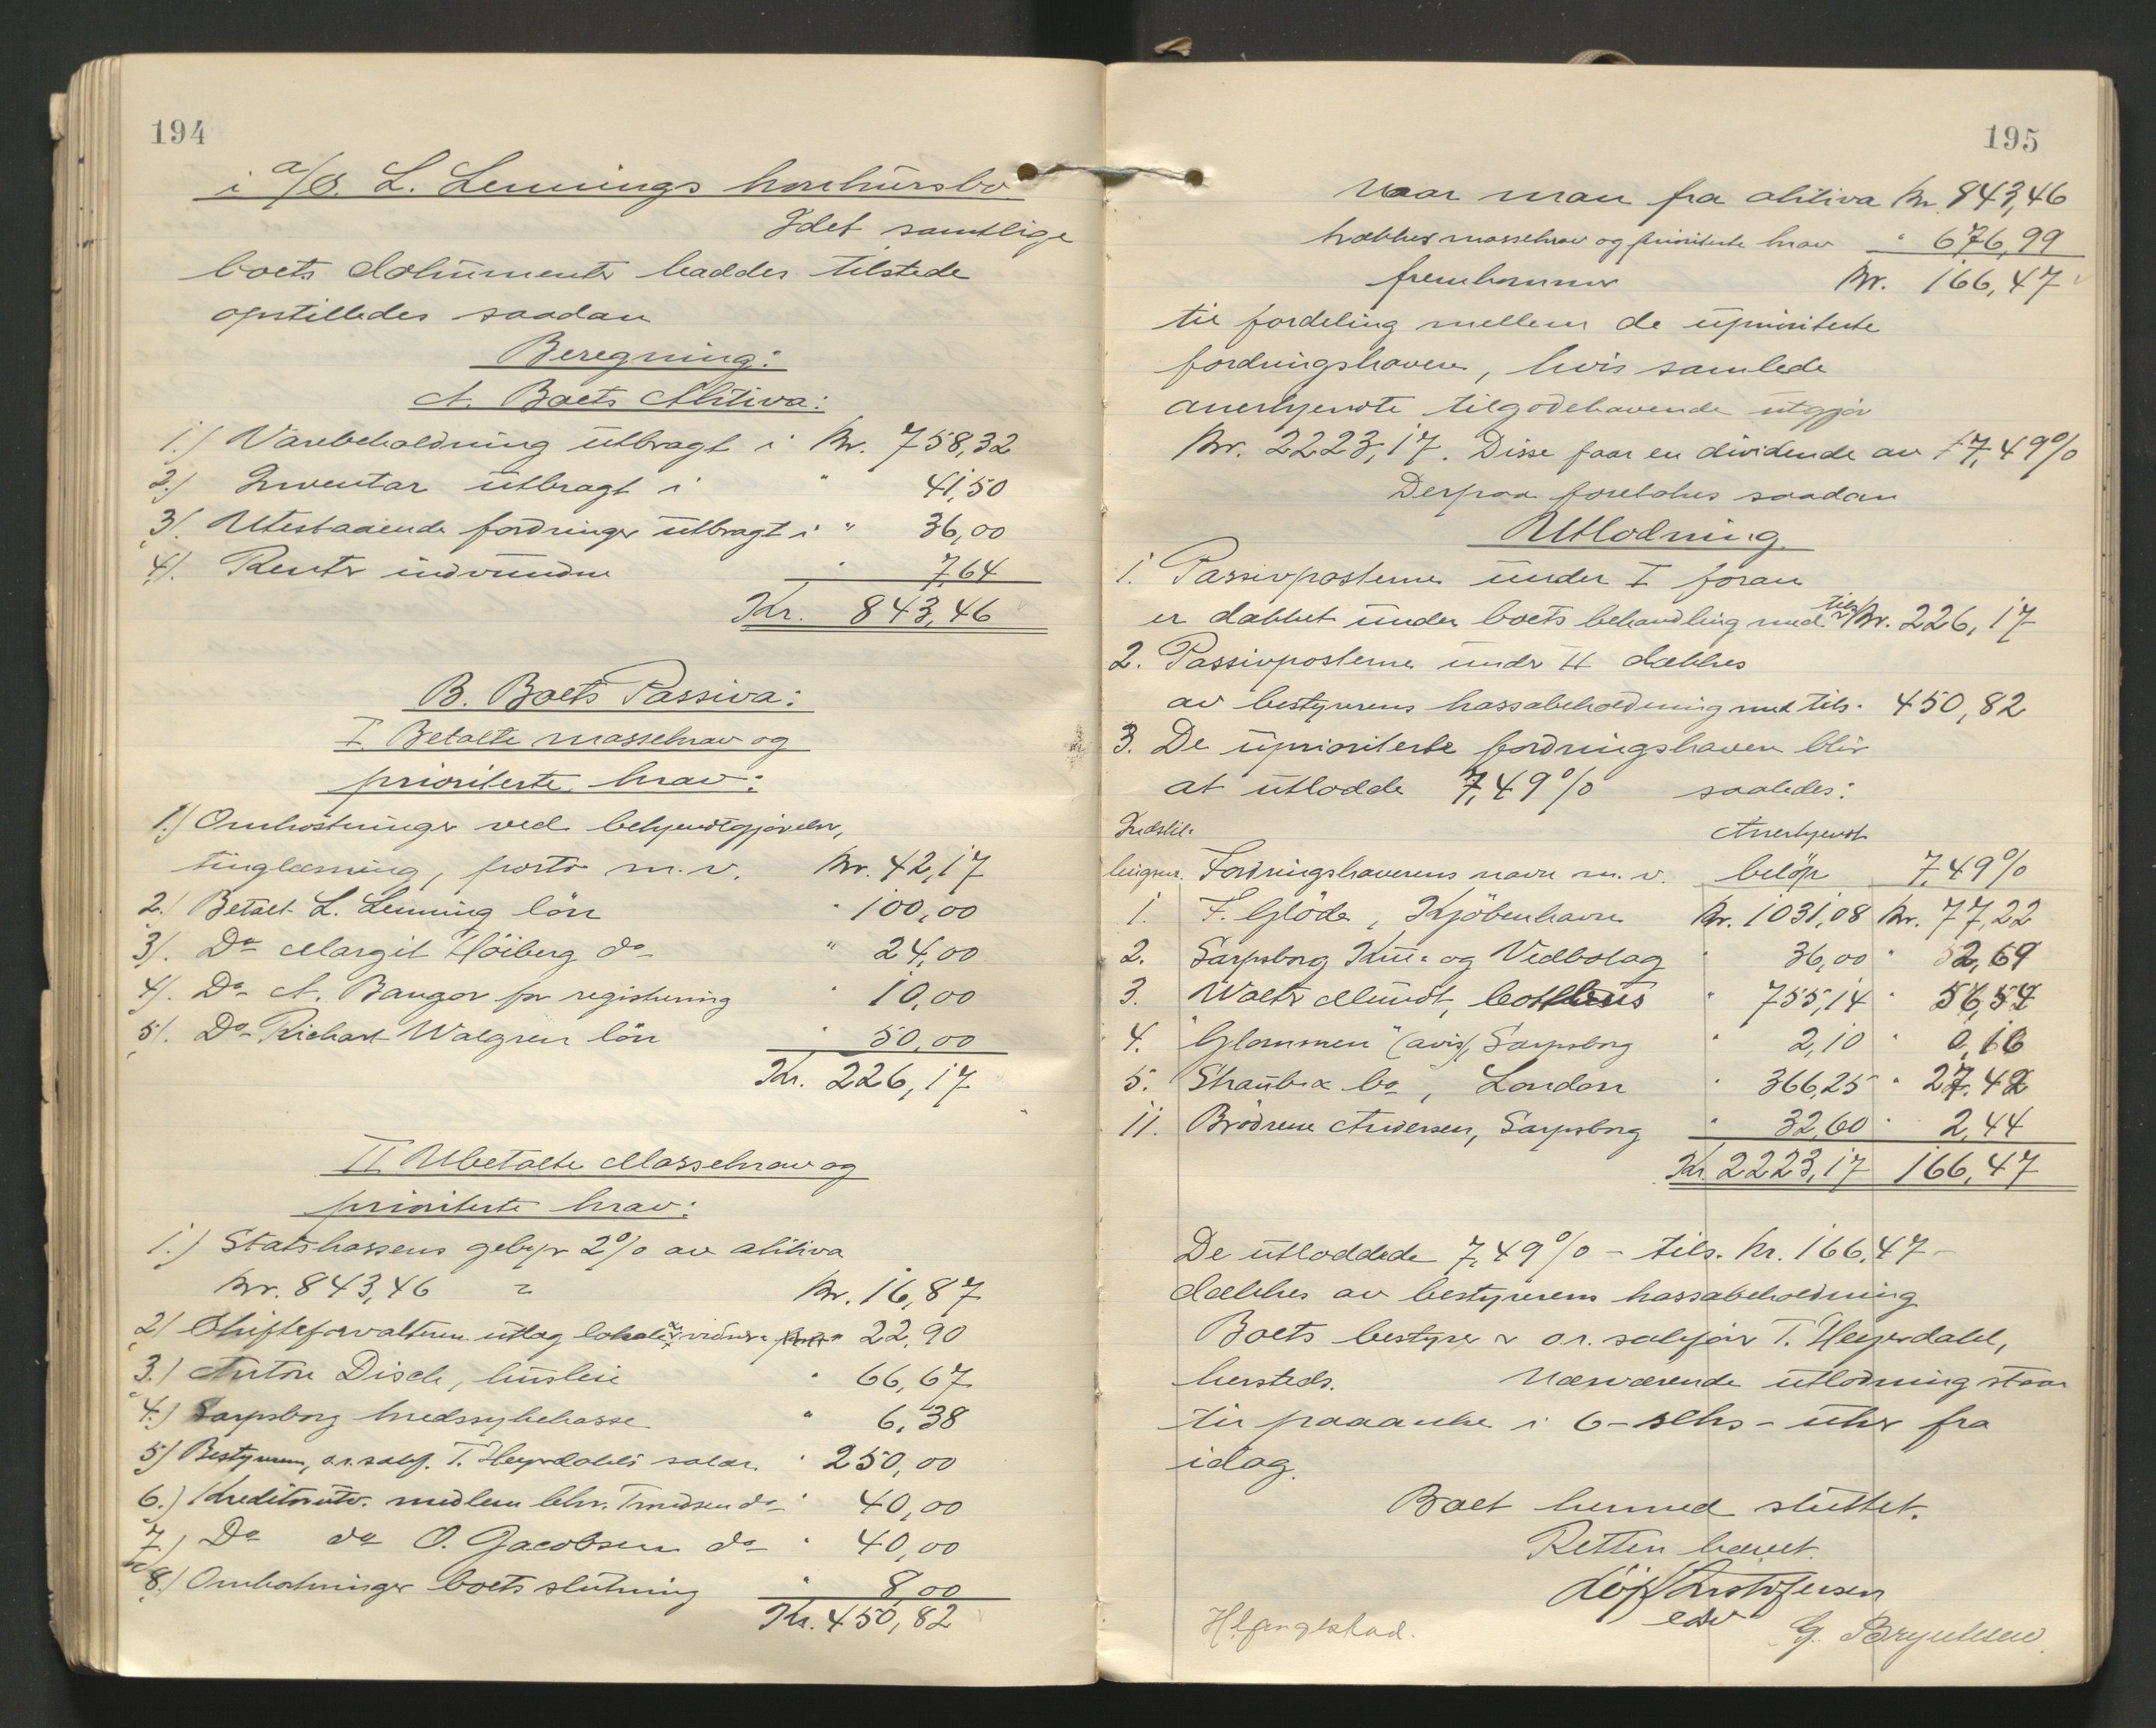 194
i a/s. L. Lennings konkursbo.
Idet samtlige
boets dokumenter haddes tilstede
opstilledes saadan
Beregning:
A. Boets Aktiva:
1.) Varebeholdning utbragt i kr. 758,32
2.) Inventar utbragt i " 41,50
3). Utestaaende fordringer utbragt i " 36,00
4). Renter indvundne " 7,64
Kr. 843,46
B. Boets Passiva:
I Betalte massekrav og
prioriterte krav:
1.) Omkostninger ved bekjendtgjørelser,
tinglæsning, porto m.v. kr. 42,17
2.) Betalt L. Lenning lön " 100,00
3). Do Margit Höiberg do " 24,00
4). Do A. Bangor for registrering " 10,00
5). Do Richart Walgren lön " 50,00
Kr. 226,17
II Ubetalte Massekrav og
prioriterte krav:
1.) Statskassens gebyr 2% av aktiva
kr. 843,46 = kr. 16,87
2) Skifteforvalteren utlæg lokale vidner " 22,90
3.) Anton Disch, husleie " 66,67
4.) Sarpsborg kredssykekasse " 6,38
5) Bestyreren, o.r.sakf. T. Heyerdahls salær " 250,00
6.) Kreditorutv. medlem Trudsen do " 40,00
7.) Do do O. Jacobsen do " 40,00
8.) Omkostninger boets slutning " 8,00
Kr. 450,82
195
Naar man fra aktiva kr. 843,46
trækker massekrav og prioriterte krav " 676,99
fremkommer kr. 166,47
til fordeling mellem de uprioriterte
fordringshavere, hvis samlede
anerkjendte tilgodehavende utgjør
kr. 2223,17. Disse faar en dividende av 7,49%
Derpaa foretokes saadan
Utlodning
1. Passivposterne under I foran
er dækket under boets behandling med tils. kr. 226,17
2. Passivposterne under II dækkes
av bestyrerens kassabeholdning med tils. 450,82
3. De uprioriterte fordringshavere blir
at utlodde 7,49% saaledes:
Indstil- Anerkjendt
lingsnr. Fordringshaverens navn m.v. beløp 7,49%
1. F. Glöde, Kjöbenhavn kr. 1031,08 kr. 77,22
2. Sarpsborg Kul- og Vedbolag " 36,00 " 2,69
3. Walter Mundt, Cottbus " 755,14 " 56,54
4. "Glommen" (avis), Sarpsborg " 2,10 " 0,16
5. Straub & Co, London " 366,25 " 27,42
11. Brödrene Andersen, Sarpsborg " 32,60 " 2,44
Kr. 2223,17 166,47
De utloddede 7,49% - tils. kr. 166,47 -
dækkes av bestyrerens kassabeholdning
Boets bestyrer er o.r. sakfører T. Heyerdahl,
hersteds. Nærværende utlodning staar
til paaanke i 6 - seks - uker fra
idag.
Boet hermed sluttet.
Retten hævet.
Kristofersen
edv
H. Langestad. G. Bryntesen